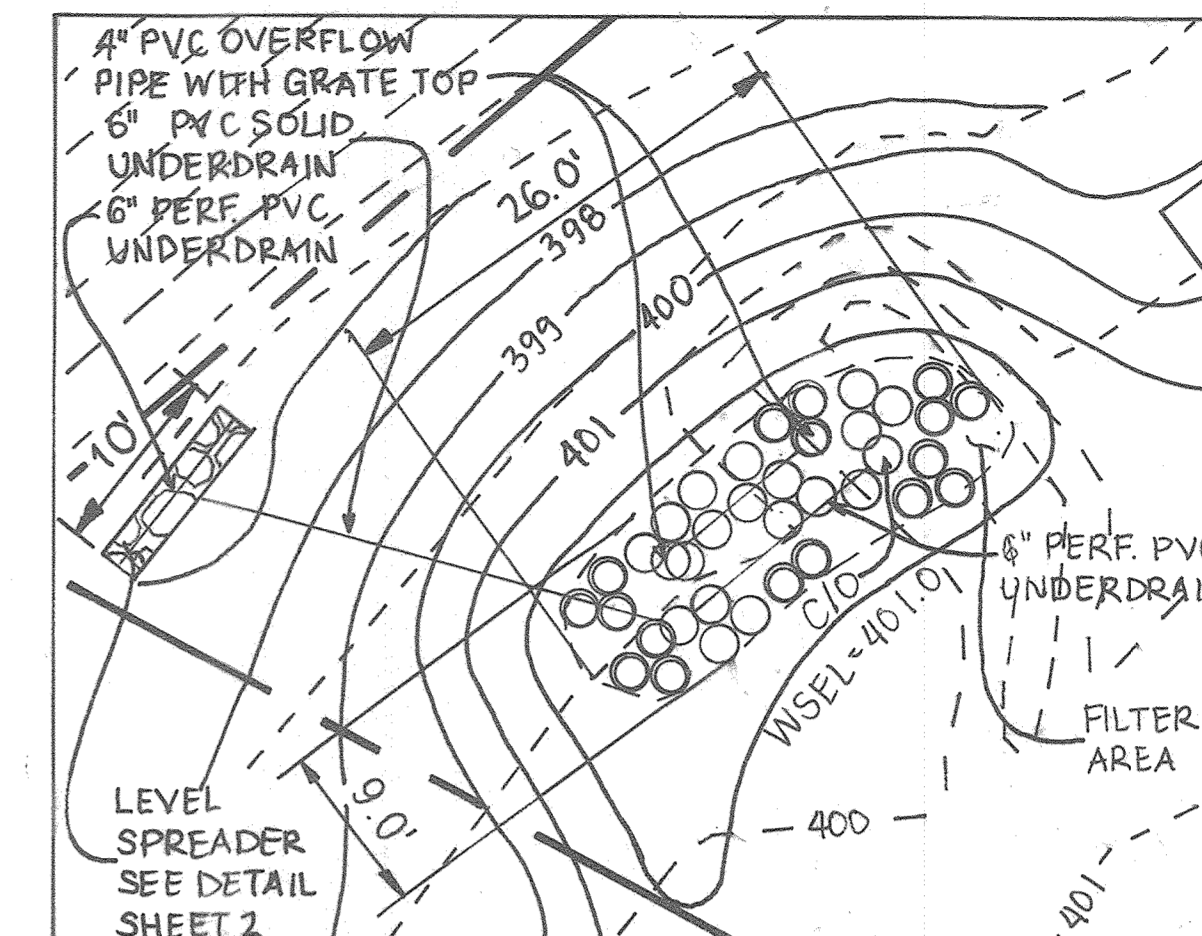 4" PVC OVERFLOW
PIPE WITH GRATE TOP
6" PVC SOLID
UNDERDRAIN
6" PERF. PVC
UNDERDRAIN
26.0'
398
400
399
401
10'
C/O
WSEL=401.0
6" PERF. PV
UNDERDRAI
FILTER
AREA
9.0'
400
401
LEVEL
SPREADER
SEE DETAIL
SHEET 2